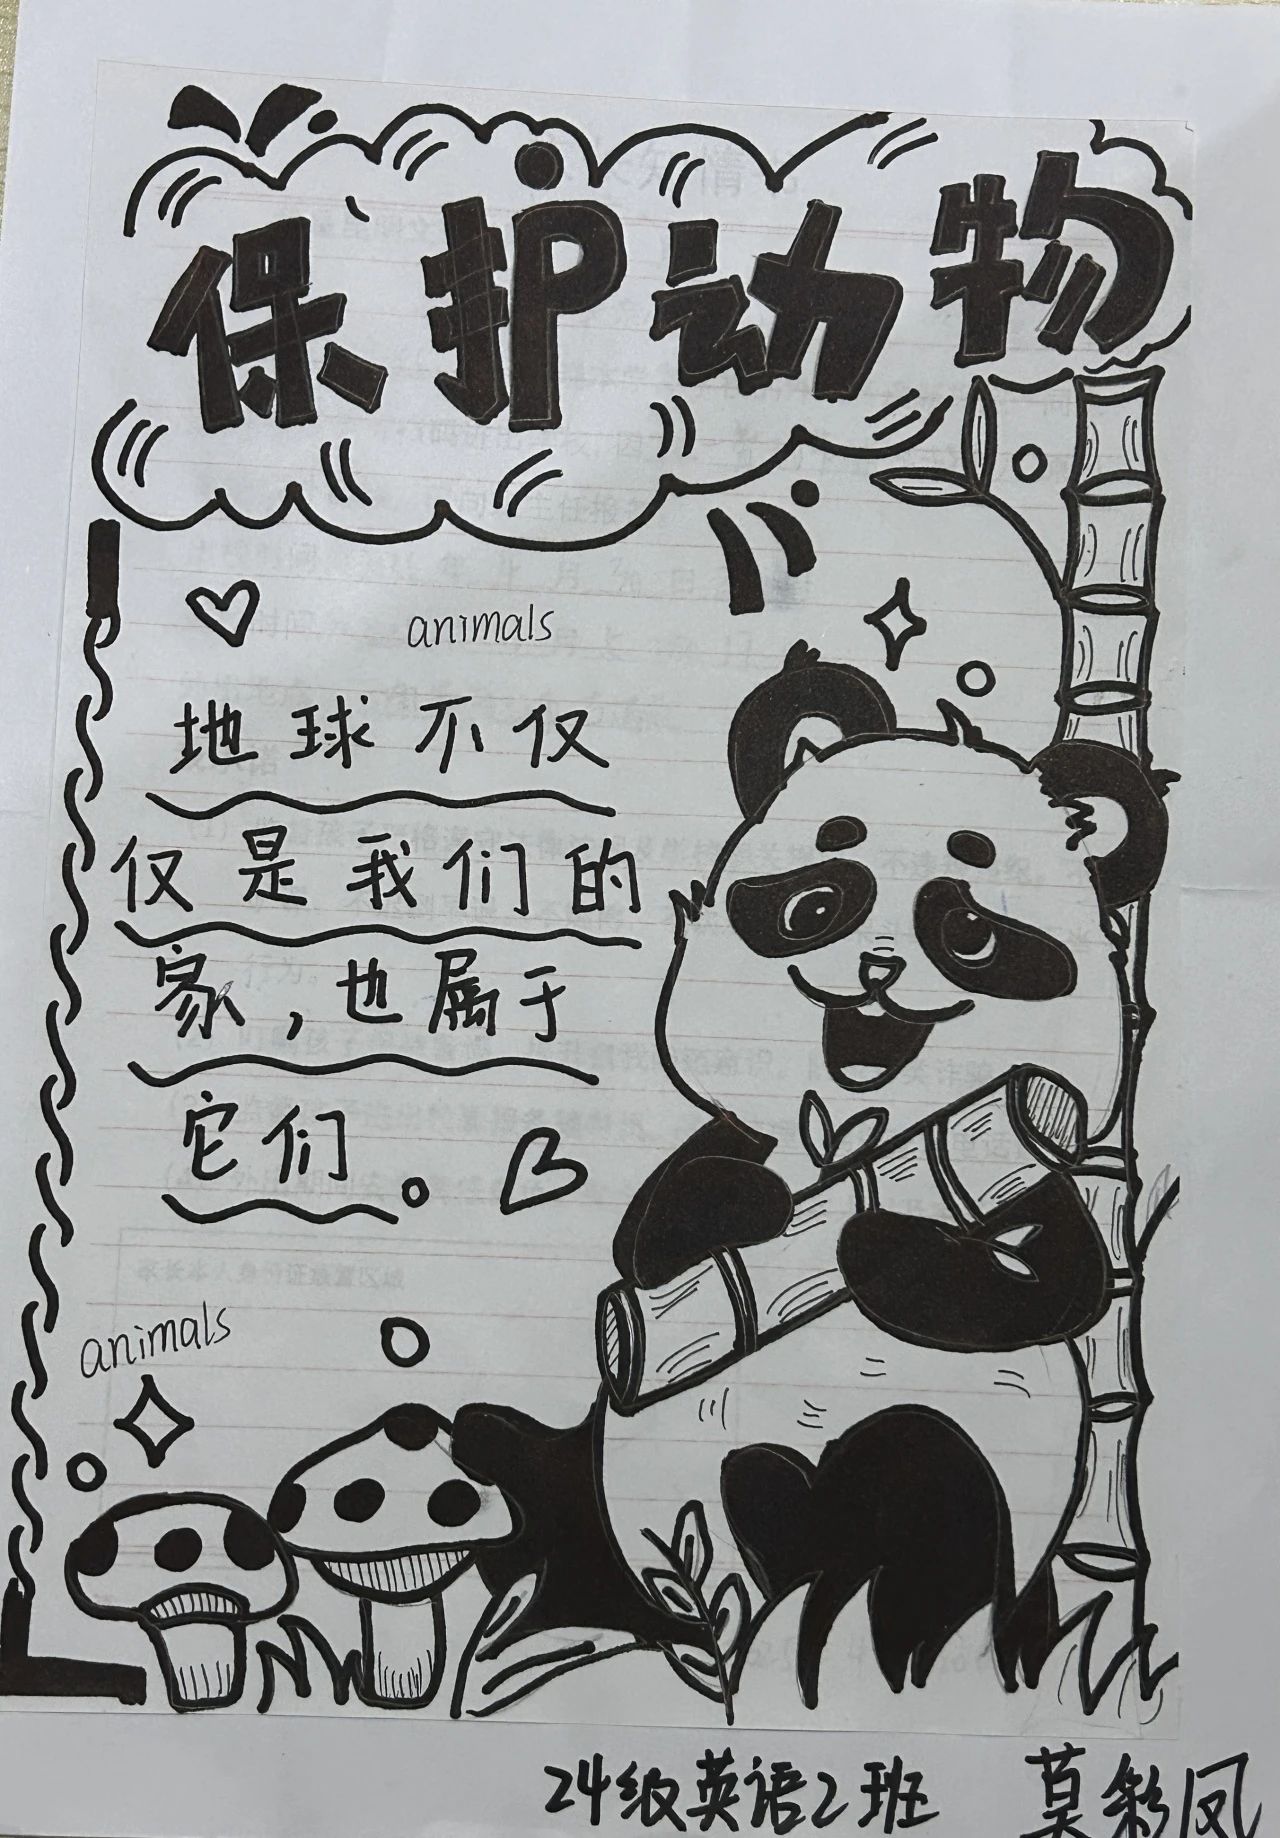 保护动物
animals
地球不仅
仅是我们的
家,也属于
它们。
animals
24级英语2班 莫彩凤